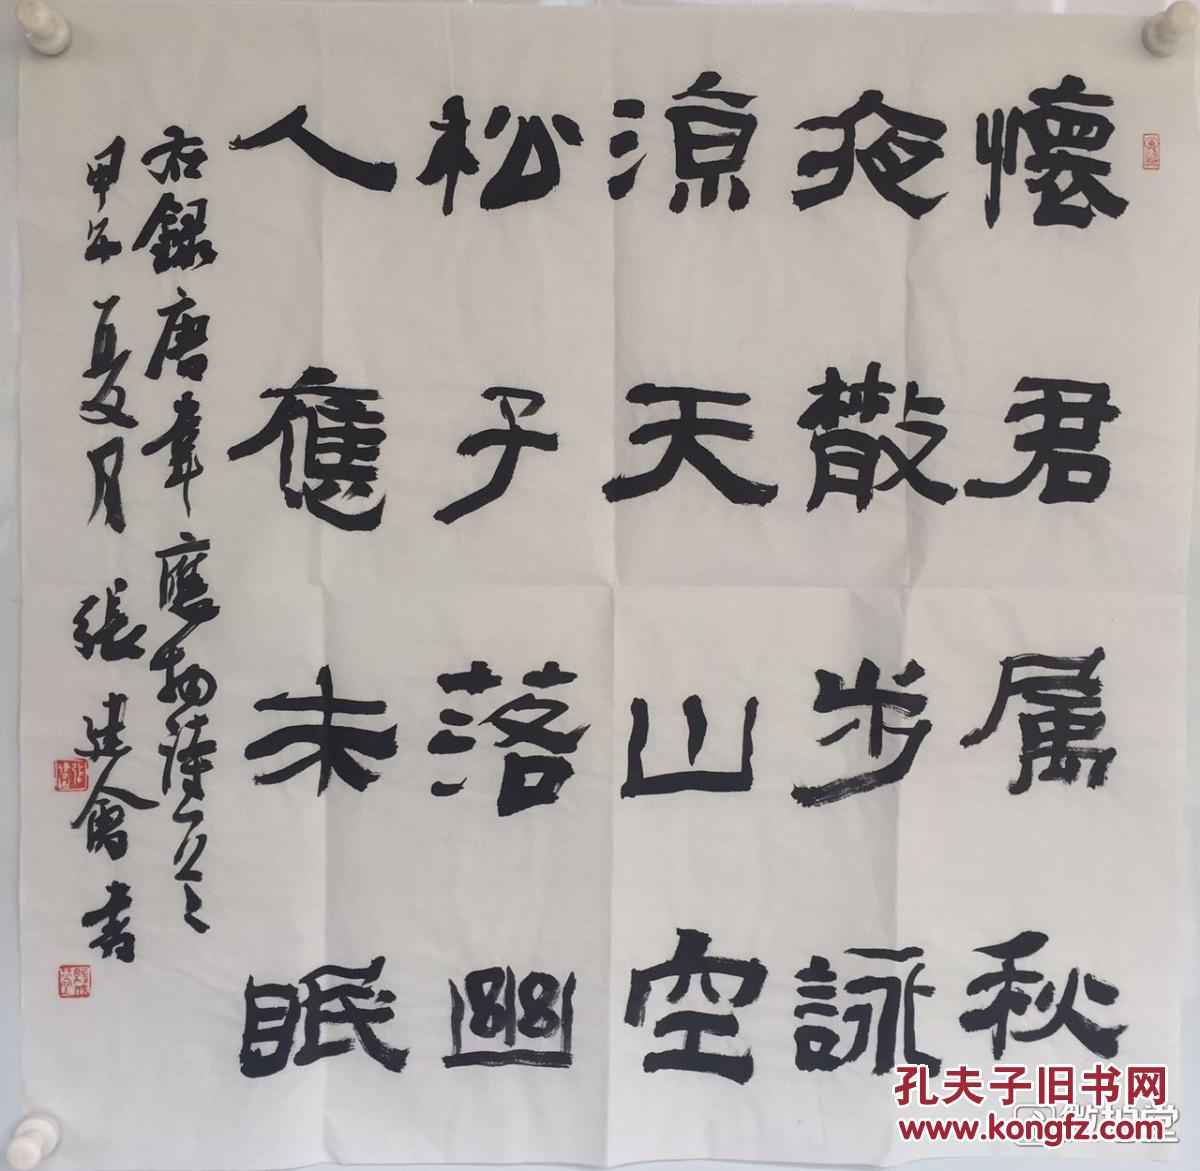 懷君属秋
夜散步詠
涼天山空
松子落幽
人應未眠
右録唐韋應物詩一首
甲午夏月 張建會書
孔夫子旧书网
www.kongfz.com